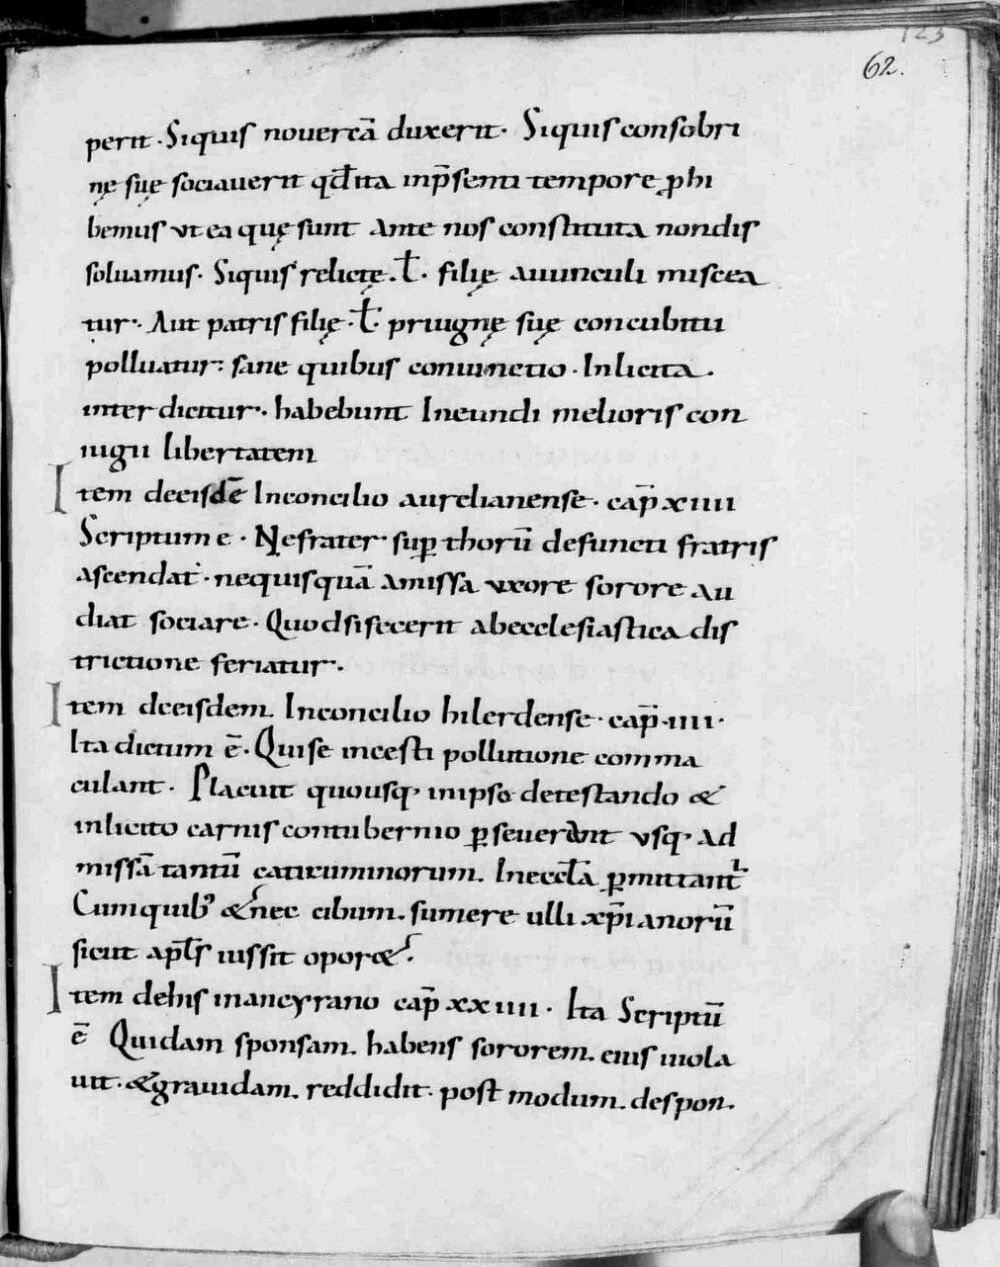 123
62.
perit. Siquis nouercā duxerit. Siquis consobri
nę suę sociauerit qđ ita inp̄senti tempore ꝓhi
bemus ut ea quę sunt Ante nos constituta non dis
soluamus. Siquis relictę. ł. filię auunculi miscea
tur. Aut patris filię. ł. priuignę suę concubitu
polluatur: sane quibus coniunctio. Inlicita.
interdicitur. habebunt Ineundi melioris con
iugii libertatem
Item deeisdē Inconcilio aurelianense. cap̄ xiiii
Scriptum e. Ne frater sup̱ thorū defuncti fratris
ascendat. nequisquā amissa uxore sorore au
diat sociare. Quodsi fecerit abecclesiastica dis
trictione feriatur.
Item deeisdem. Inconcilio hilerdense. cap̄ .iiii.
Ita dictum ē. Qui se incesti pollutione comma
culant. Placuit quousq; inipso detestando &
inlicito carnis contubernio ꝑseuerant usq; Ad
missā tantū caticuminorum. Ineccłā ꝑmittant᷑
Cumquib; &nec cibum. sumere ulli xp̄ianorū
sicut apłs iussit opor&.
Item dehis inancyrano cap̄ xxiiii. Ita Scriptū
ē Quidam sponsam. habens sororem. eius uiola
uit. &grauidam. reddidit. post modum. despon.